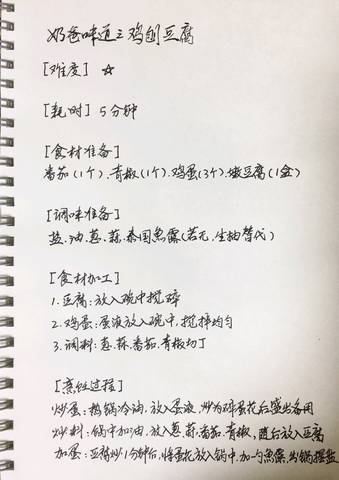 奶爸味道之鸡刨豆腐
[难度] ☆
[耗时] 5分钟
[食材准备]
番茄(1个).青椒(1个).鸡蛋(3个).嫩豆腐(1盒)
[调味准备]
盐.油.葱.蒜.泰国鱼露(若无,生抽替代)
[食材加工]
1.豆腐:放入碗中搅碎
2.鸡蛋:蛋液放入碗中,搅拌均匀
3.调料:葱.蒜.番茄.青椒切丁
[烹饪过程]
炒蛋:热锅冷油,放入蛋液,炒为碎蛋花后盛出备用
炒料:锅中加油,放入葱.蒜.番茄.青椒,随后放入豆腐
加蛋:豆腐炒1分钟后,将蛋花放入锅中,加一勺鱼露,出锅摆盐